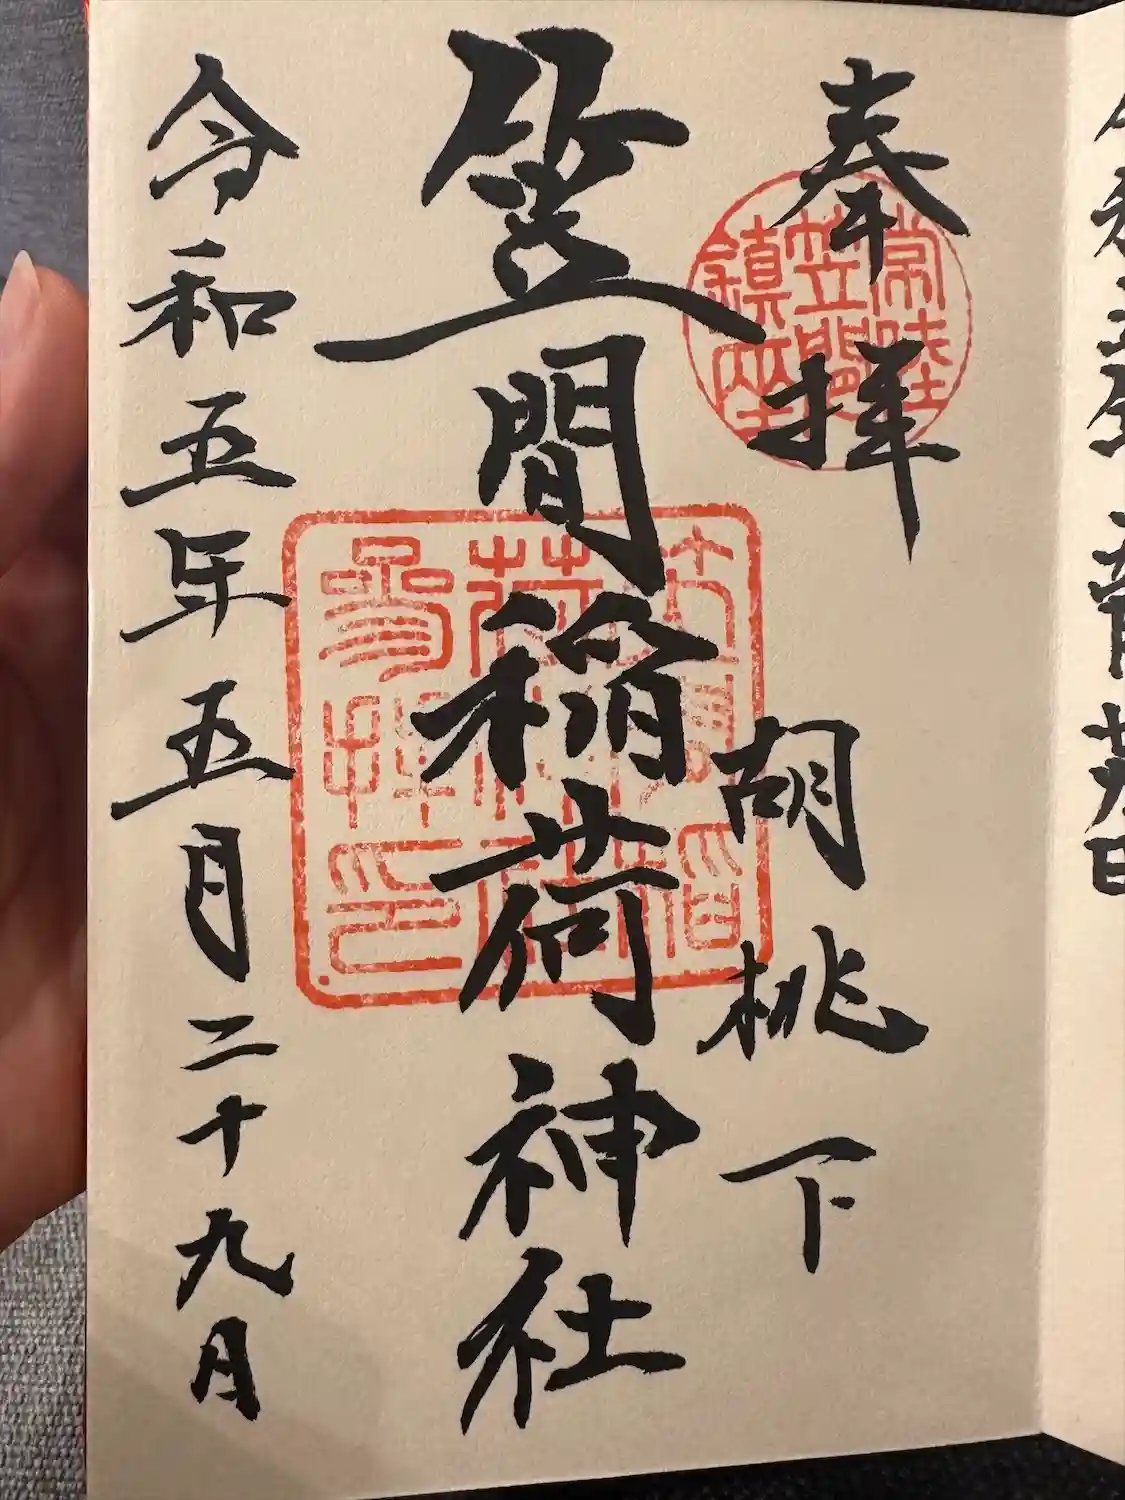 奉拝
常陸
笠間
鎮座
胡桃下
笠間稲荷神社
笠間稲
荷神社
参拝印
令和五年五月二十九月